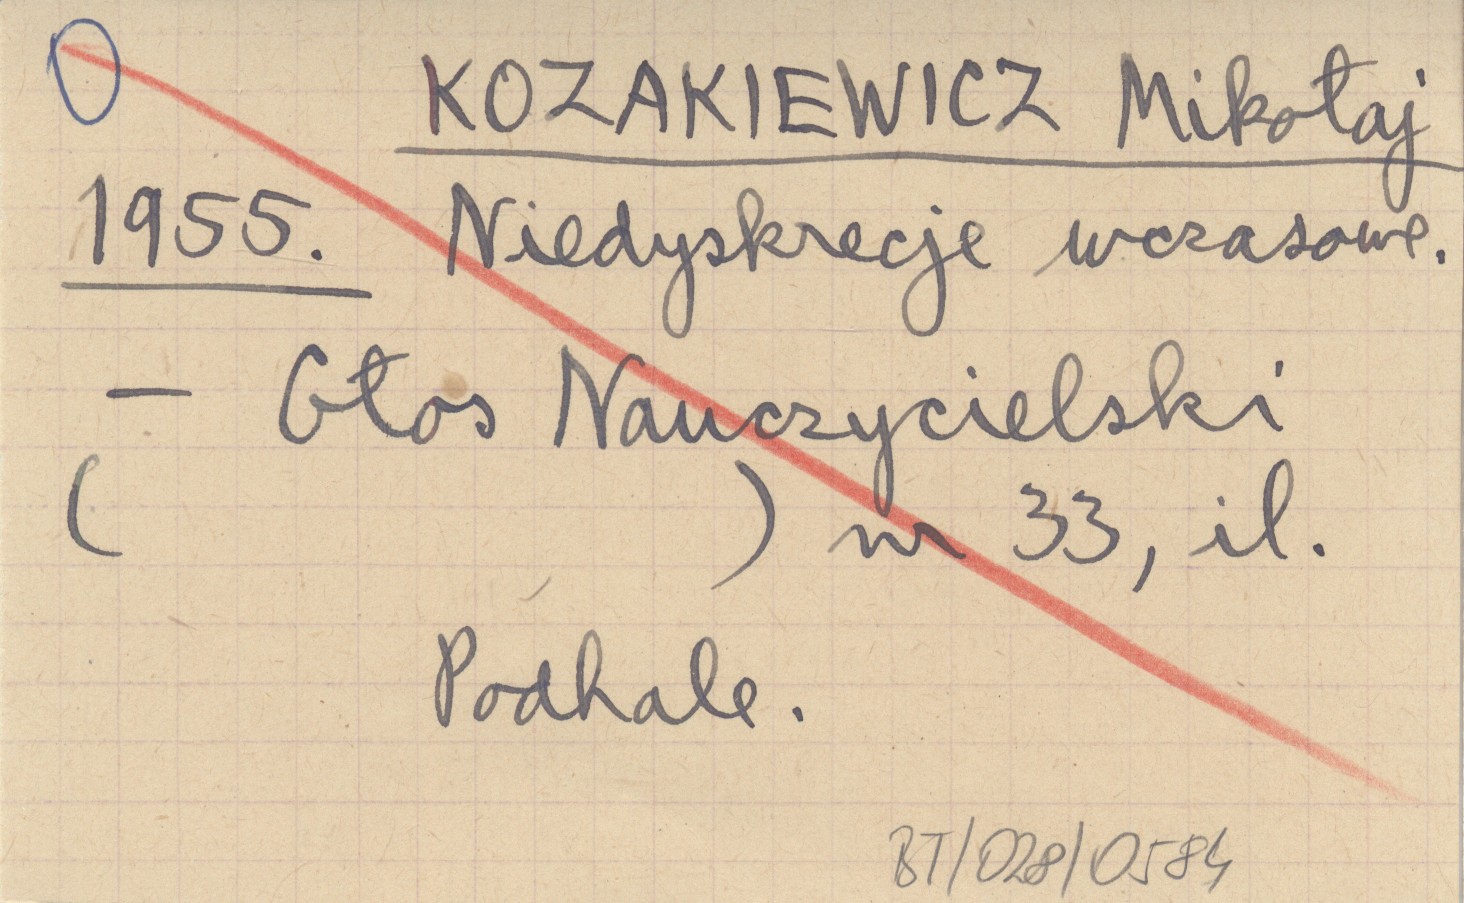 KOZAKIEWICZ Mikołaj
1955. Niedyskrecje wczasowe.
— Głos Nauczycielski
( ) nr 33, il.
Podhale.
BT/028/0584